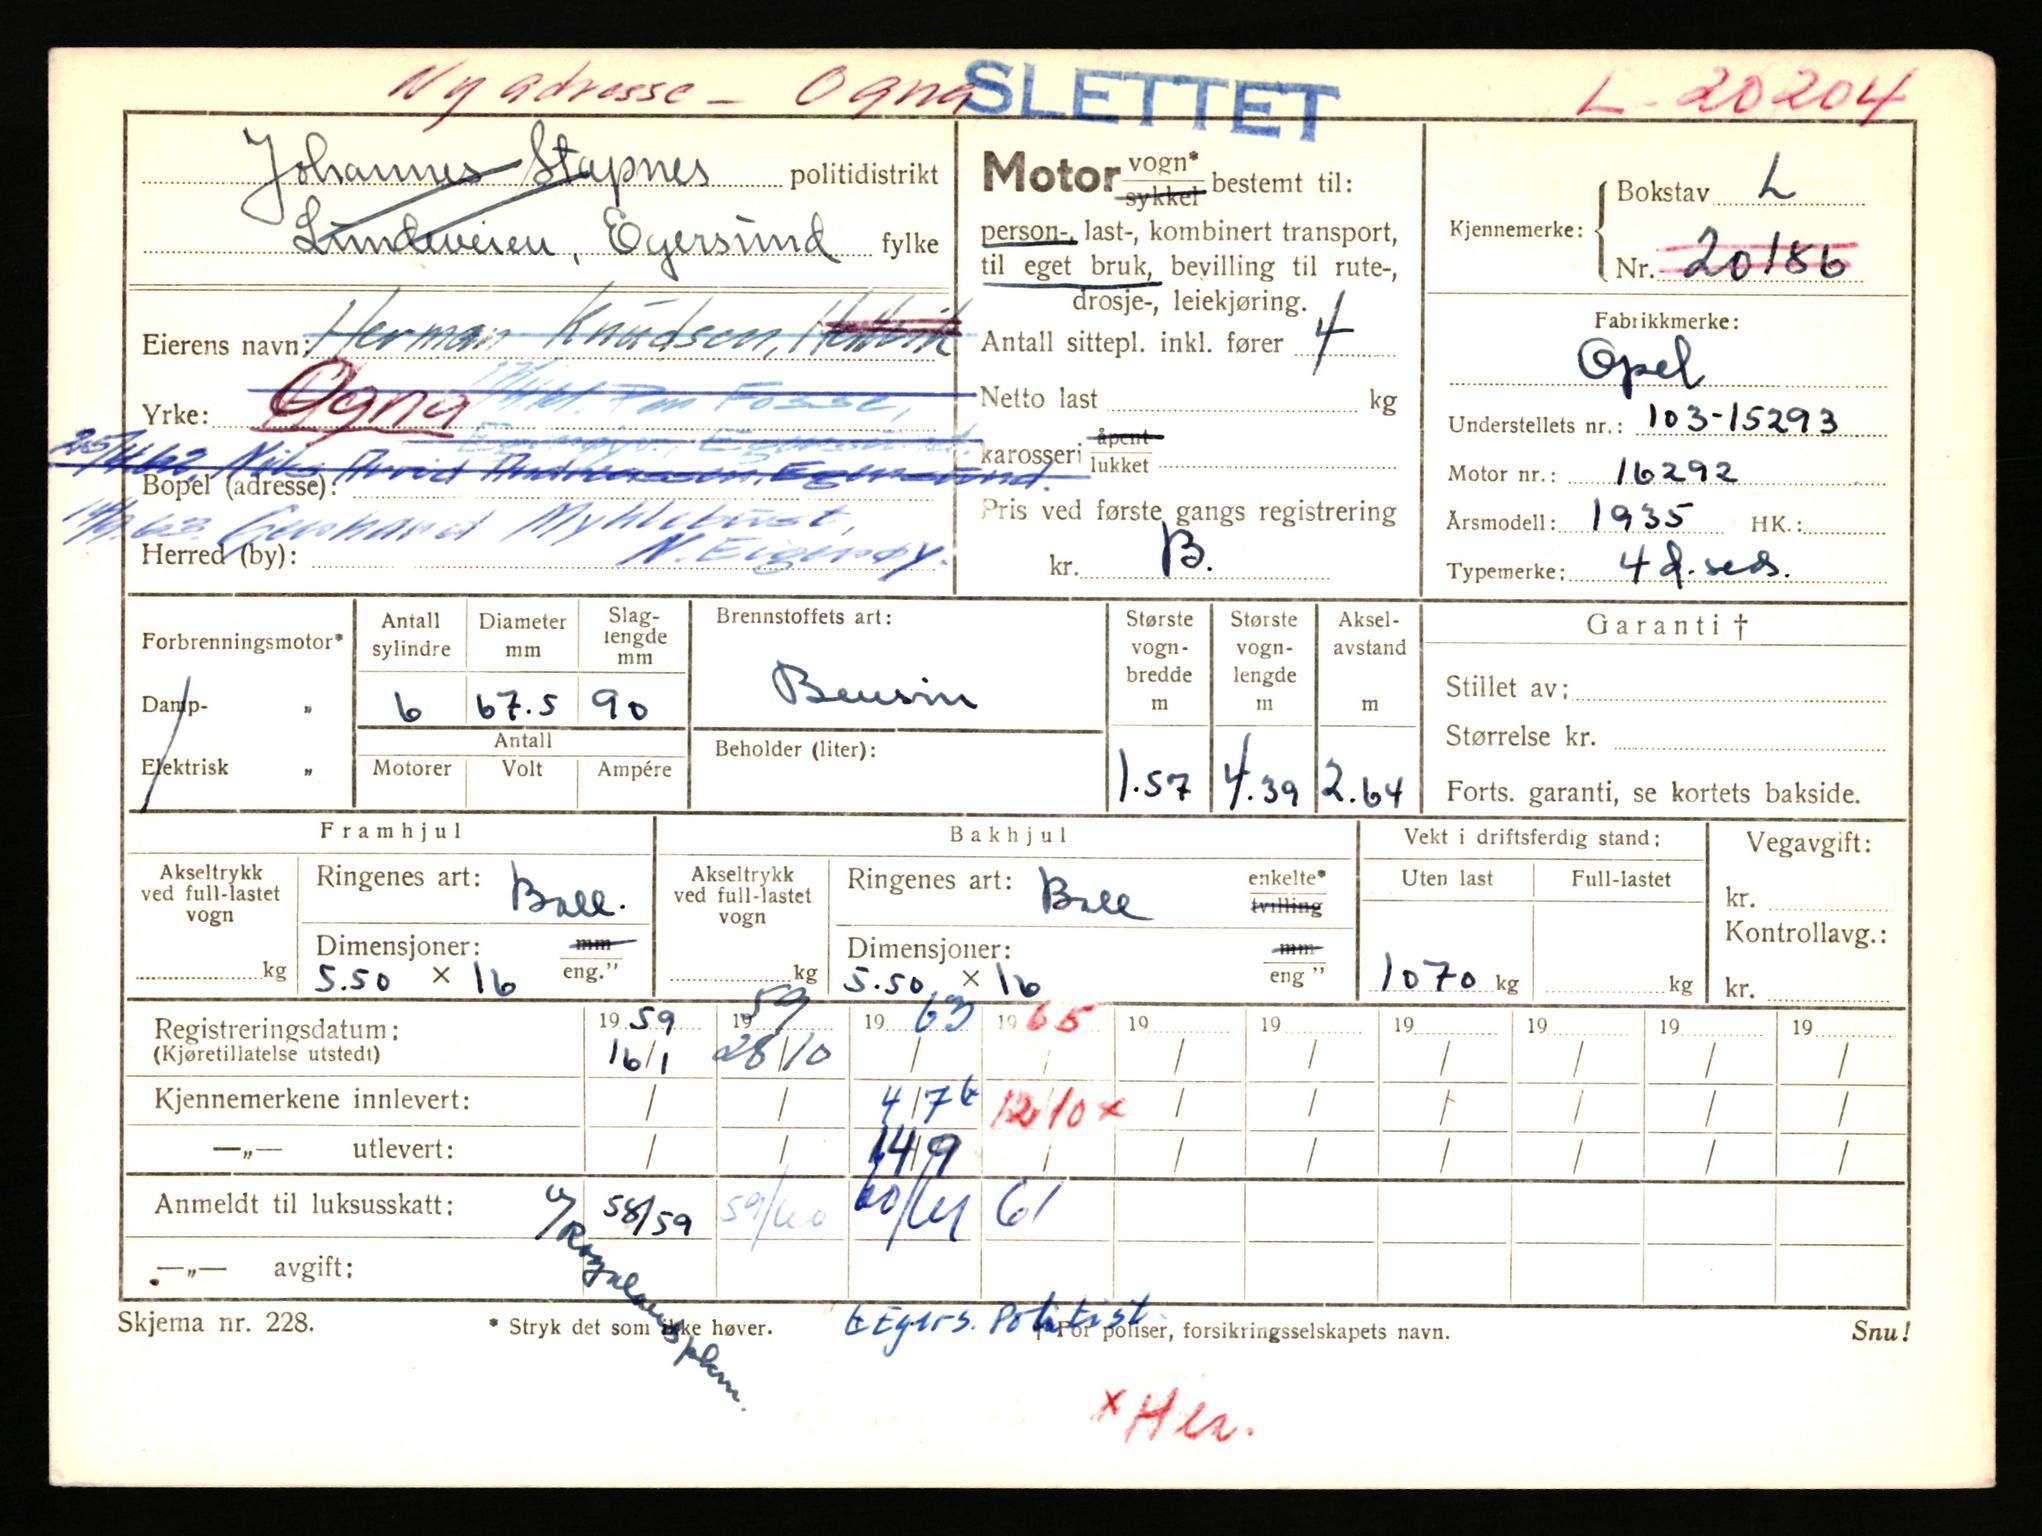 Ny adresse – Ogna SLETTET L - 20204
Johannes Stapnes politidistrikt
Lundeveien, Egersund fylke
Eierens navn: Herman Knudsen,
Yrke: Ogna
Fosse,
Egersund.
25/4 62. Nils Arvid Andreassen, Egersund.
Bopel (adresse):
14/9 63. Gerhard Myklebust,
Herred (by): N. Eigerøy.
Motor vogn* sykkel bestemt til:
person-, last-, kombinert transport,
til eget bruk, bevilling til rute-,
drosje-, leiekjøring.
Antall sittepl. inkl. fører 4
Netto last kg
karosseri åpent lukket
Pris ved første gangs registrering
kr. B.
Kjennemerke: Bokstav L
Nr. 20186
Fabrikkmerke:
Opel
Understellets nr.: 103-15293
Motor nr.: 16292
Årsmodell: 1935 HK.:
Typemerke: 4 d. sed.
Forbrenningsmotor*
Damp- „
Elektrisk „
Antall sylindre 6
Diameter mm 67.5
Slag- lengde mm 90
Antall
Motorer Volt Ampére
Brennstoffets art:
Bensin
Beholder (liter):
Største vogn- bredde m 1.57
Største vogn- lengde m 4.39
Aksel- avstand m 2.64
Garanti †
Stillet av:
Størrelse kr.
Forts. garanti, se kortets bakside.
Framhjul
Akseltrykk ved full-lastet vogn kg
Ringenes art: Ball.
Dimensjoner: mm eng.”
5.50 × 16
Bakhjul
Akseltrykk ved full-lastet vogn kg
Ringenes art: Ball enkelte* tvilling
Dimensjoner: mm eng ”
5.50 × 16
Vekt i driftsferdig stand:
Uten last Full-lastet
1070 kg kg
Vegavgift:
kr.
Kontrollavg.:
kr.
Registreringsdatum: 19 59 19 59 19 63 19 65 19 19 19 19 19 19
(Kjøretillatelse utstedt) 16/1 28/10 / / / / / / / /
Kjennemerkene innlevert: / / 4/7 t 12/10 x / / / / / /
—„— utlevert: / / 14/9 / / / / / / /
Anmeldt til luksusskatt: 58/59 59/60 60/61 61
—„— avgift:
v/Rogalands pkm.
Skjema nr. 228. * Stryk det som ikke høver. t Egers. Politist. † For poliser, forsikringsselskapets navn. Snu!
x Her.